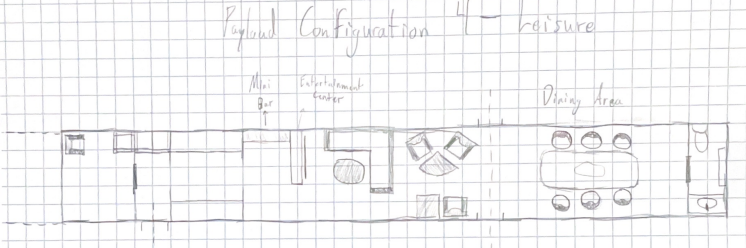 Payload Configuration 4 - Leisure
Mini
Bar
Entertainment
Center
Dining Area